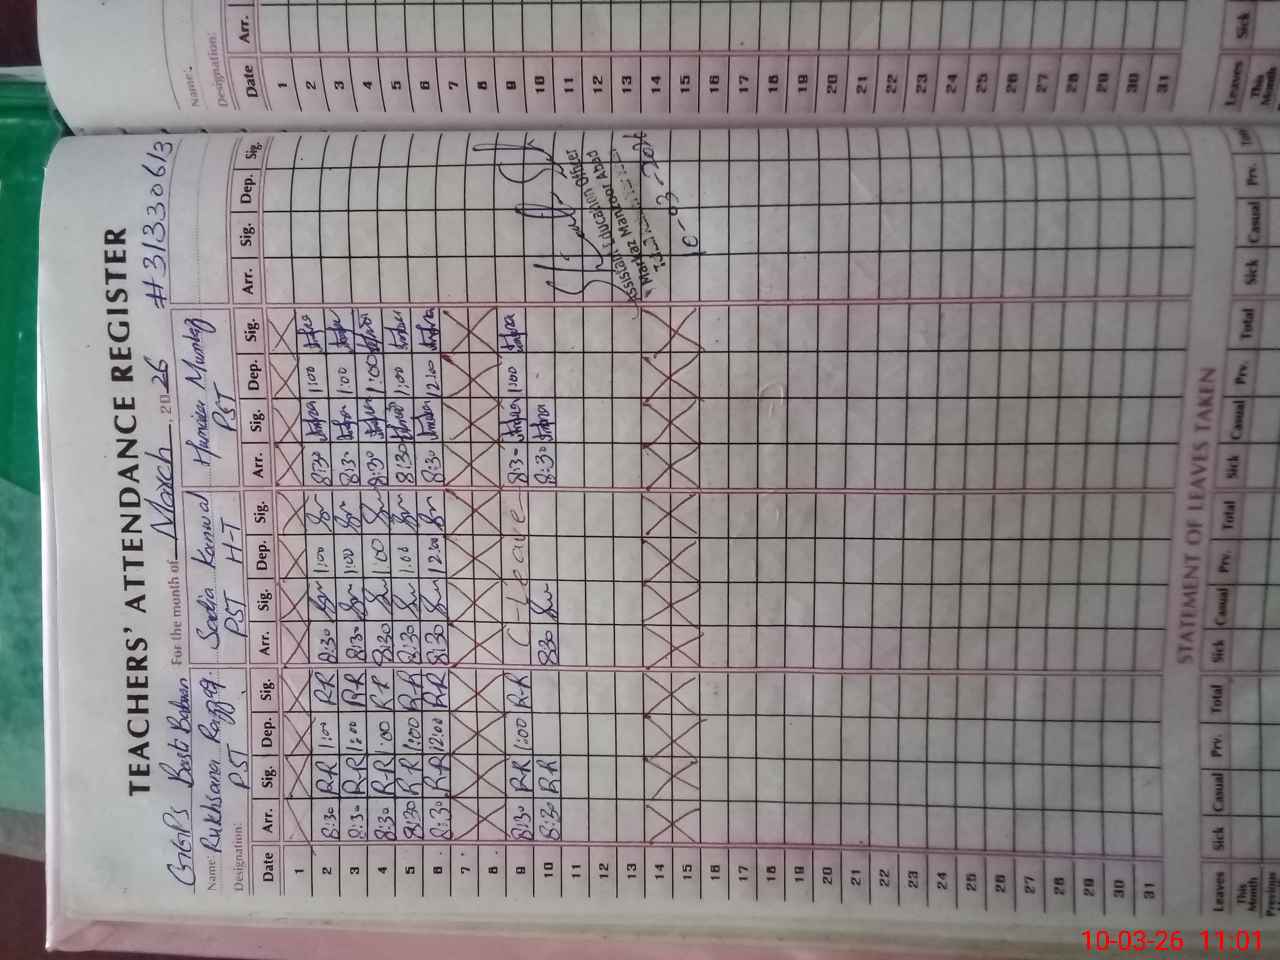 TEACHERS' ATTENDANCE REGISTER
GGPS Basti Batwan For the month of March, 2026 #31330613
Name: Rukhsana Razzaq Sadia Kanwal Humaira Mumtaz
Designation: PST PST H-T PST
Date Arr. Sig. Dep. Sig. Arr. Sig. Dep. Sig. Arr. Sig. Dep. Sig. Arr. Sig. Dep. Sig.
1
2 8:30 R-R 1:00 R-R 8:30 1:00 8:30 1:00
3 8:30 R-R 1:00 R-R 8:30 1:00 8:30 1:00
4 8:30 R-R 1:00 R-R 8:30 1:00 8:30 1:00
5 8:30 R-R 1:00 R-R 8:30 1:00 8:30 1:00
6 8:30 R-R 12:00 R-R 8:30 12:00 8:30 12:00
7
8
9 8:30 R-R 1:00 R-R C-Leave 8:30 1:00
10 8:30 R-R 8:30 8:30
11
12
13
14
15
16
17
18
19
20
21
22
23
24
25
26
27
28
29
30
31
Assistant Education Officer
Markaz Manzoor Abad
10-03-2026
STATEMENT OF LEAVES TAKEN
Leaves Sick Casual Prv. Total Sick Casual Prv. Total Sick Casual Prv. Total Sick Casual Prv. Total
This Month
Previous
Name:
Designation:
Date Arr.
1
2
3
4
5
6
7
8
9
10
11
12
13
14
15
16
17
18
19
20
21
22
23
24
25
26
27
28
29
30
31
Leaves Sick
This Month
10-03-26 11:01